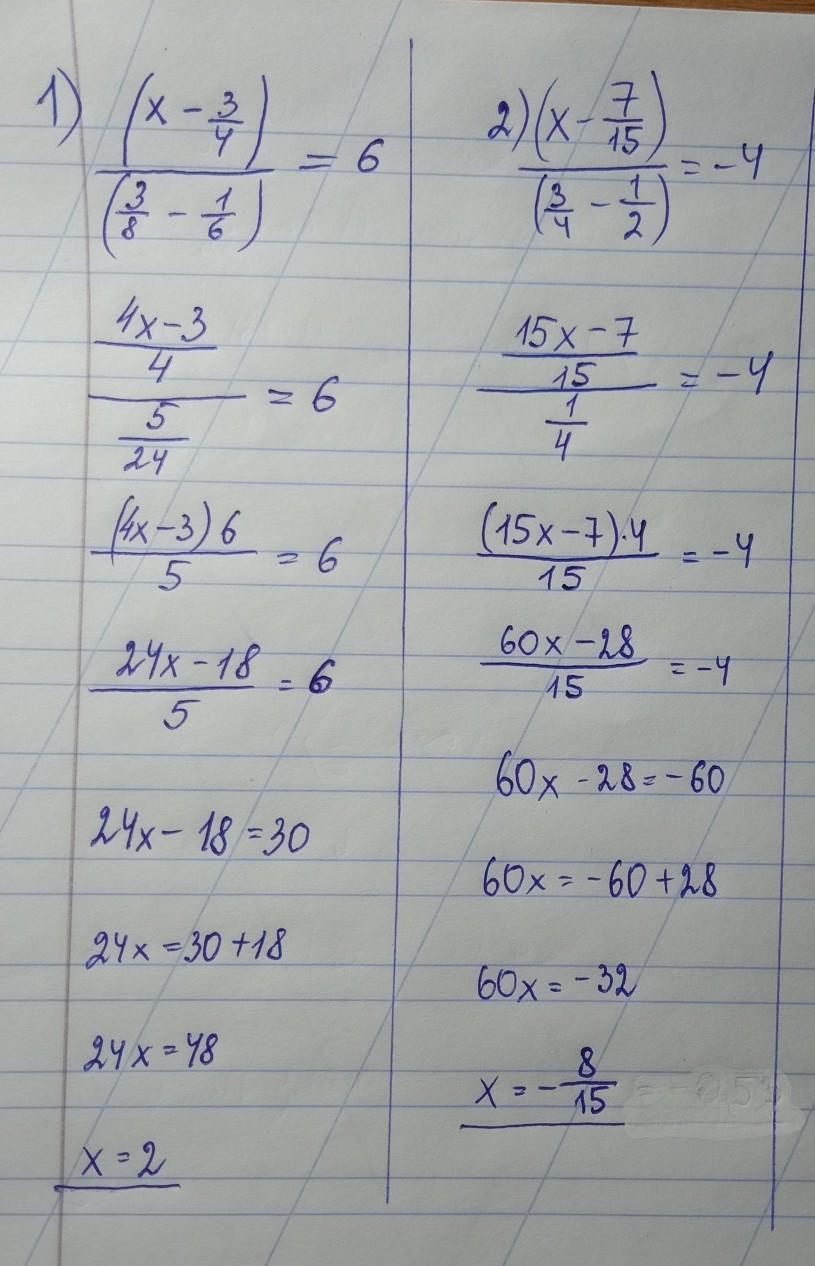 1) (x - 3/4) / (3/8 - 1/6) = 6
(4x - 3)/4 / 5/24 = 6
(4x - 3) 6 / 5 = 6
24x - 18 / 5 = 6
24x - 18 = 30
24x = 30 + 18
24x = 48
x = 2
2) (x - 7/15) / (3/4 - 1/2) = -4
(15x - 7)/15 / 1/4 = -4
(15x - 7) · 4 / 15 = -4
60x - 28 / 15 = -4
60x - 28 = -60
60x = -60 + 28
60x = -32
x = - 8/15